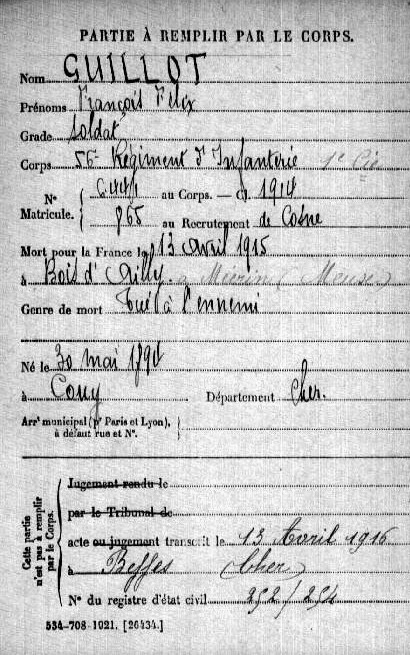 PARTIE À REMPLIR PAR LE CORPS.
Nom GUILLOT
Prénoms François Félix
Grade Soldat
Corps 56e Régiment d'Infanterie 1e Cie
N° Matricule. { 6441 au Corps. — Cl. 1914
865 au Recrutement de Cosne
Mort pour la France le 13 avril 1915
à Bois d'Ailly à Mécrin (Meuse)
Genre de mort Tué à l'ennemi
Né le 30 mai 1894
à Couy Département Cher.
Arrt municipal (pr Paris et Lyon),
à défaut rue et N°.
Cette partie n'est pas à remplir par le Corps.
Jugement rendu le
par le Tribunal de
acte ou jugement transcrit le 13 Avril 1916
à Beffes (Cher)
N° du registre d'état civil 252/254
534-708-1921. [26434.]